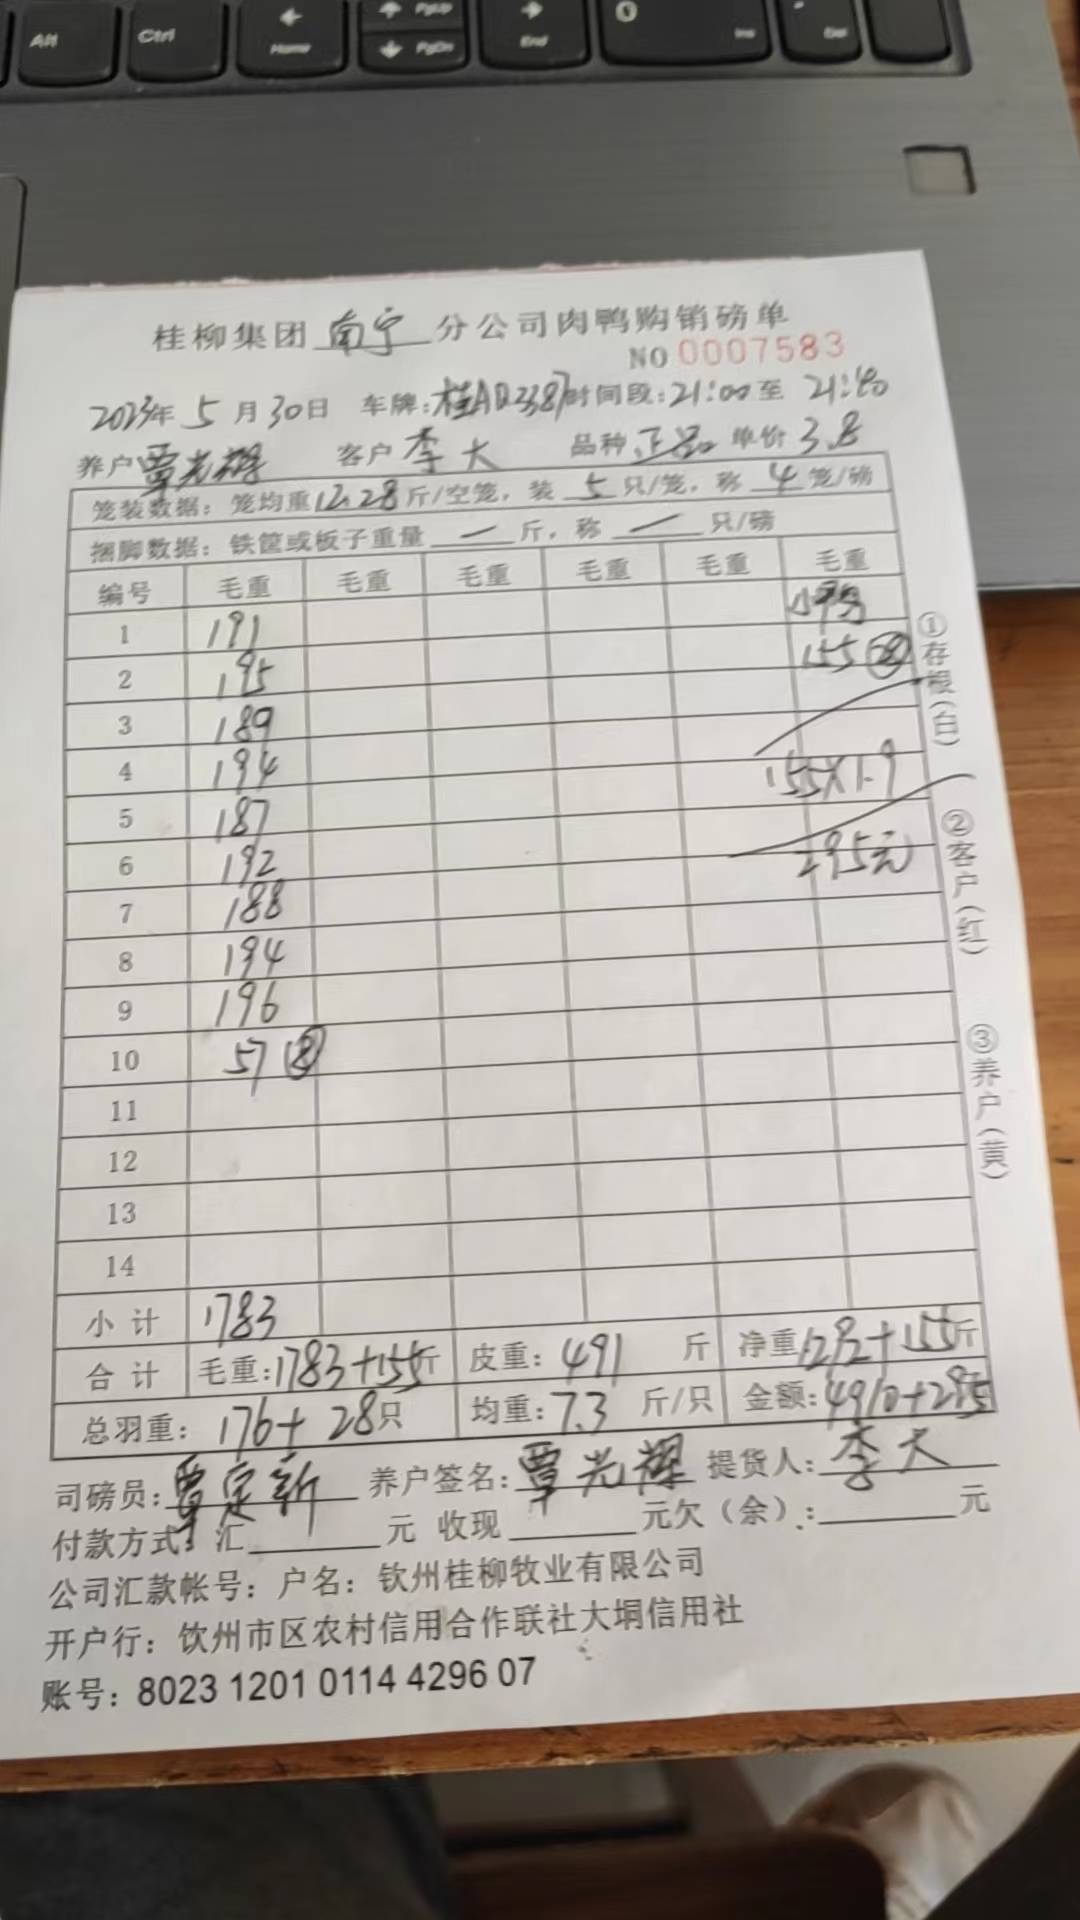 Alt Ctrl Home PgUp PgDn End Ins Del
桂柳集团 南宁 分公司肉鸭购销磅单
NO 0007583
2023年 5 月 30日 车牌:桂AD2387 时间段:21:00 至 21:40
养户 覃光辉 客户 李大 品种 正品 单价 3.8
笼装数据：笼均重12.28斤/空笼，装 5 只/笼，称 4 笼/磅
捆脚数据：铁筐或板子重量 一 斤，称 一 只/磅
编号 毛重 毛重 毛重 毛重 毛重 毛重
1 191
2 195 155 (28)
3 189
4 194 155X1.9
5 187
6 192 295元
7 188
8 194
9 196
10 57
11
12
13
14
小 计 1783
合 计 毛重:1783+155斤 皮重: 491 斤 净重1292+155斤
总羽重: 176+28只 均重:7.3 斤/只 金额:4910+295
司磅员:覃定新 养户签名:覃光辉 提货人:李大
付款方式: 汇 元 收现 元欠（余）: 元
公司汇款帐号：户名：钦州桂柳牧业有限公司
开户行：饮州市区农村信用合作联社大垌信用社
账号：8023 1201 0114 4296 07
①存根(白)
②客户(红)
③养户(黄)